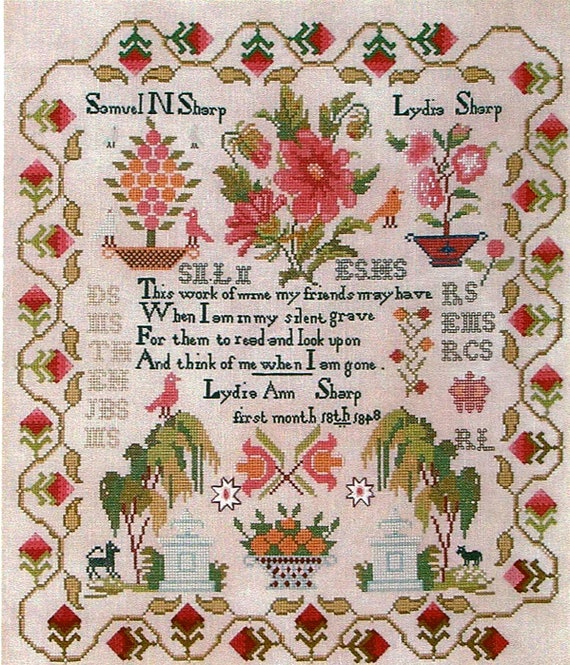 Samuel N Sharp
Lydia Sharp
ES.MS
This work of mine my friends may have
When I am in my silent grave
For them to read and look upon
And think of me when I am gone.
Lydia Ann Sharp
first month 18th 1848
DS
MS
TH
EH
JBS
MS
RS
EMS
RCS
RL